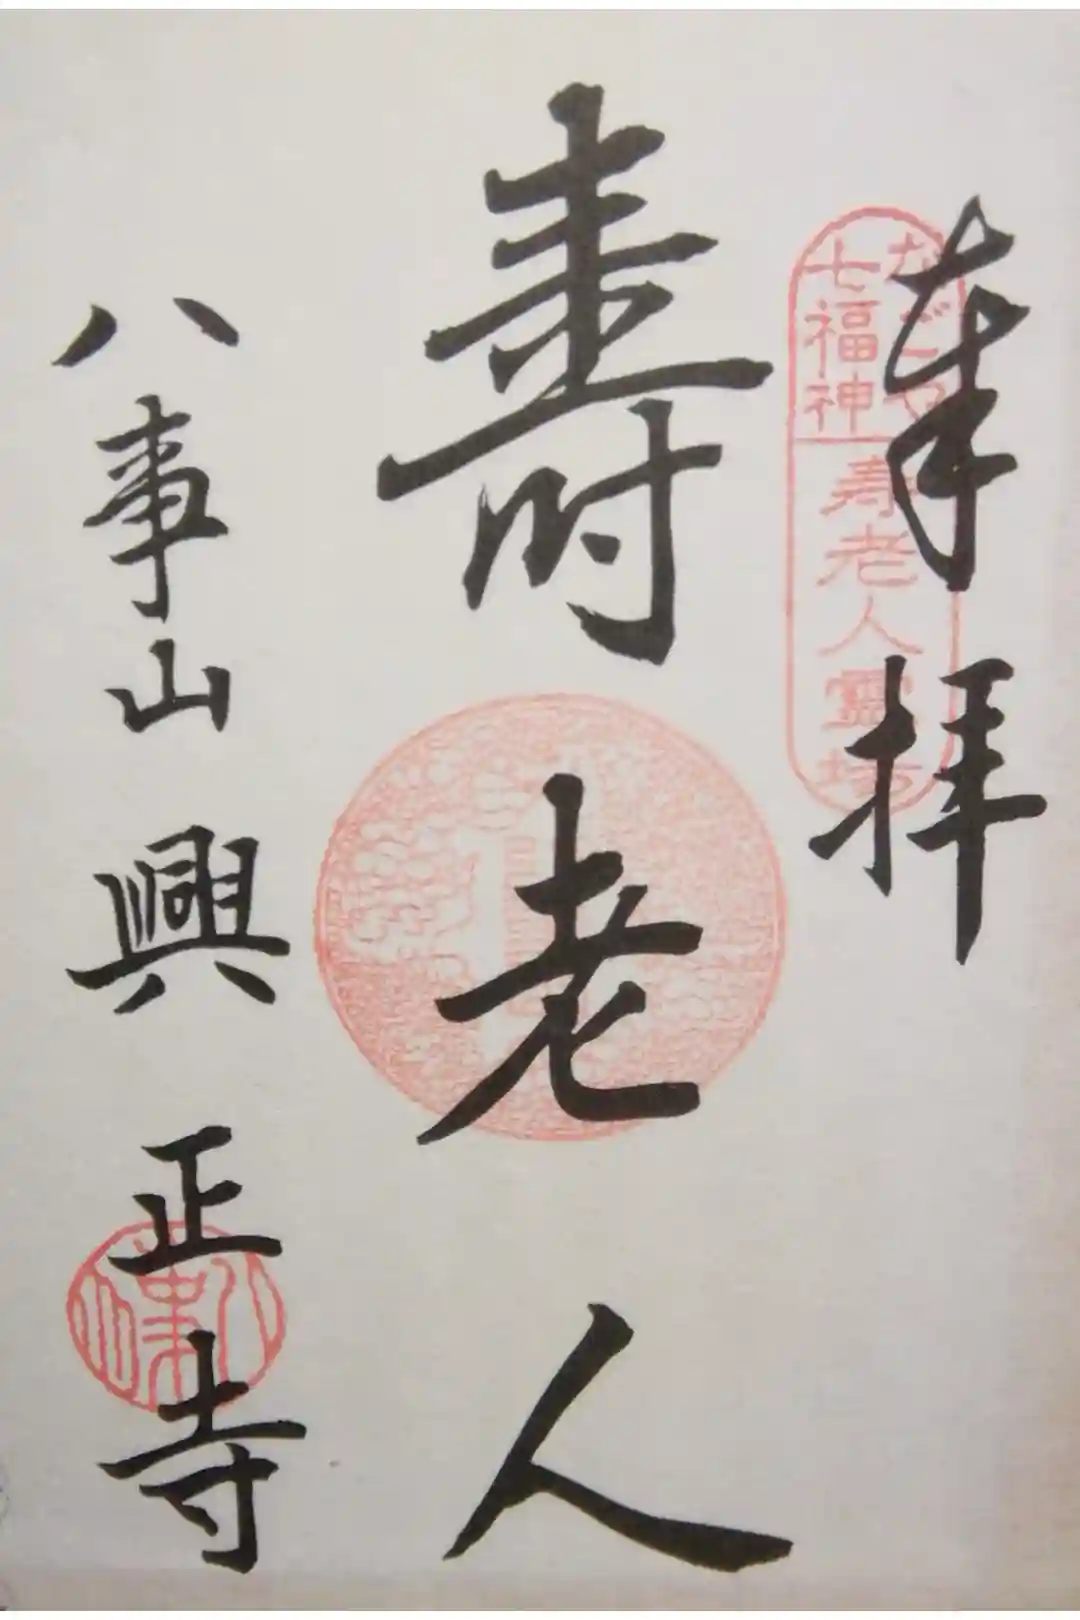 奉拝
なごや
七福神
寿老人霊場
寿老人
八事山 興正寺
八事山